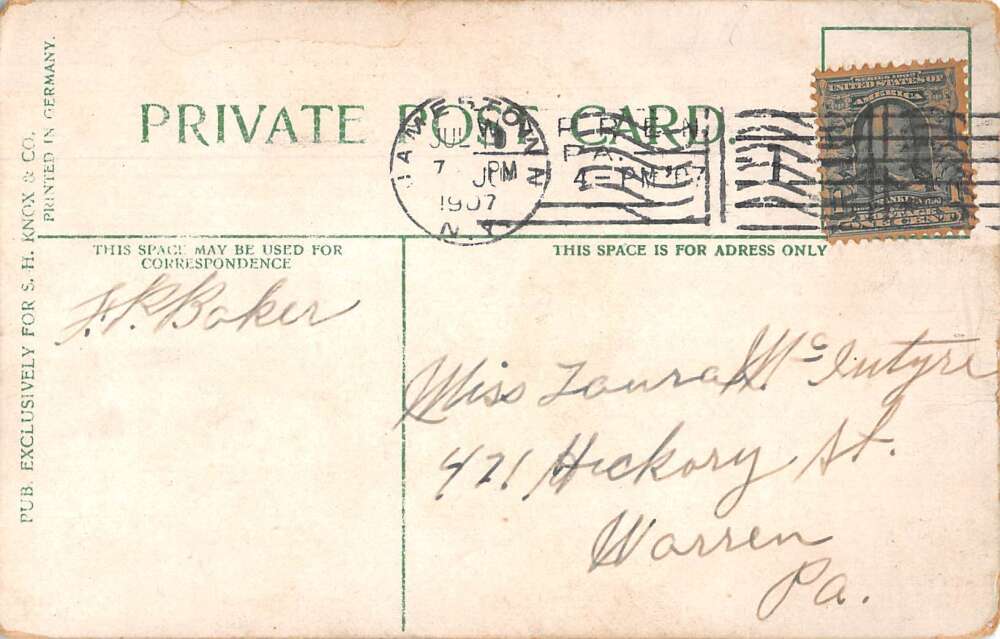 PRIVATE POST CARD.
JAMESTOWN
JUL
7 PM
1907
N.Y.
PA.
4-PM '07
SERIES 1902
UNITED STATES OF
AMERICA
FRANKLIN
POSTAGE
ONE CENT
THIS SPACE MAY BE USED FOR
CORRESPONDENCE
THIS SPACE IS FOR ADRESS ONLY
F.P. Baker
Miss Laura McIntyre
421 Hickory St.
Warren
Pa.
PUB. EXCLUSIVELY FOR S. H. KNOX & CO.
PRINTED IN GERMANY.